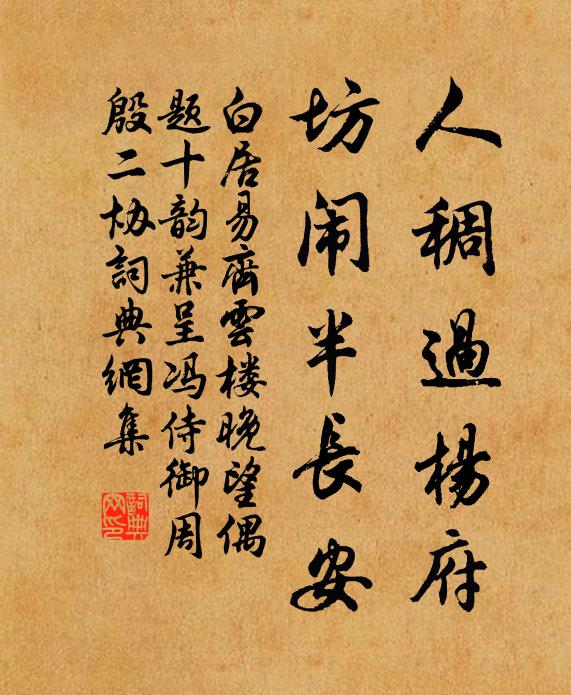 人稠過楊府
坊闹半長安
白居易齊雲楼晚望偶
题十韵兼呈冯侍御周
殷二协詞典網集
詞典网印